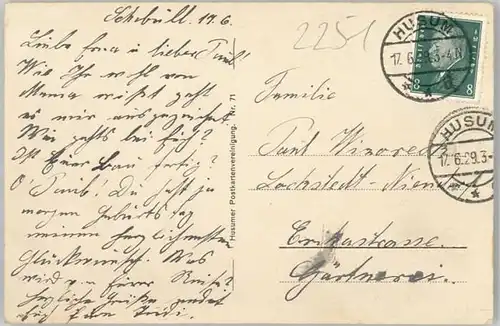 Schobüll. 17.6.
Liebe Erna u. lieber Paul!
Wie Ihr wohl von
Mama wißt geht
es mir ausgezeichnet
Wie gehts bei Euch?
Ist Euer Bau fertig?
O' Paul! Du hast ja
morgen Geburtstag
meinen herzlichsten
Glückwunsch. Was
wird von Eurer Reise?
herzliche Grüße sendet
Euch
2251
Familie
Paul
Lockstedt-
Erikastrasse.
Gärtnerei.
Husumer Postkartenvereinigung. Nr. 71
HUSUM
17.6.29.3-4N
8 8
HUSUM
17.6.29.3-